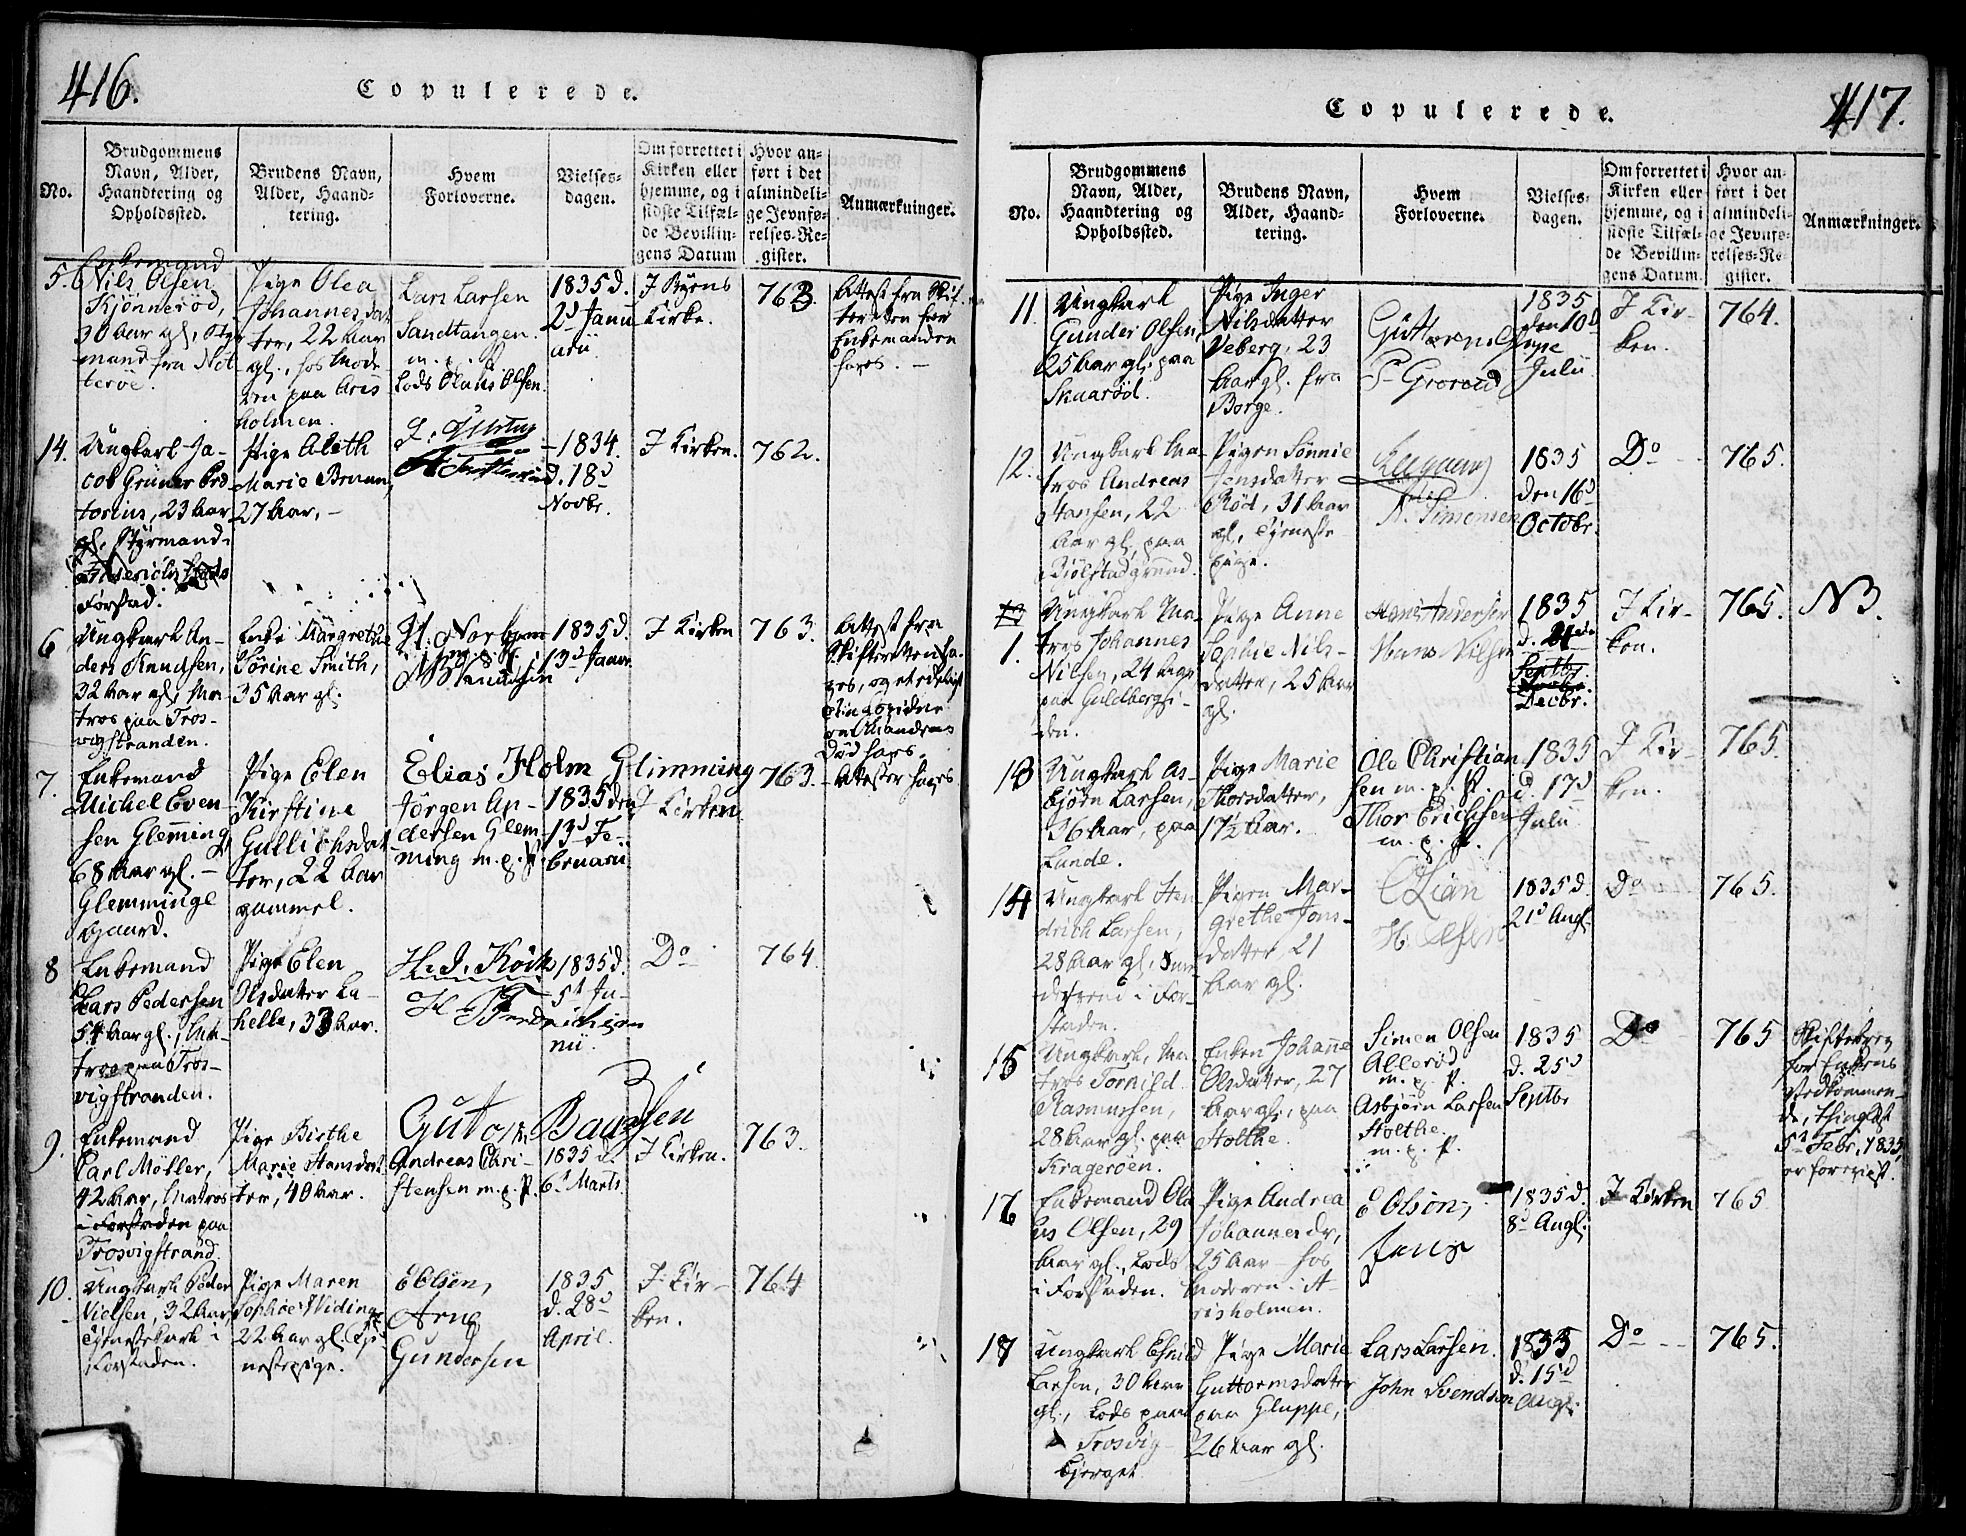 416.
Copulerede.
No.
Brudgommens
Navn, Alder,
Haandtering og
Opholdssted.
Brudens Navn,
Alder, Haand-
tering.
Hvem
Forloverne.
Vielses-
dagen.
Om forrettet i
Kirken eller
hjemme, og i
sidste Tilfæl-
de Bevillin-
gens Datum
Hvor an-
ført i det
almindeli-
ge Jevnfø-
relses-Re-
gister.
Anmærkninger.
5.
Enkemand
Nils Olsen
Kjønnerød,
30 Aar gl,
mand fra
terøe.
Pige Olea
Johannesdat
ter, 22 Aar
gl., hos Mode-
ren paa Aris
holmen.
Lars Larsen
Sandtangen
m. p. P.
Lods Olaus Olsen.
1835 d.
2d Janu
arii
I Byens
Kirke.
763.
Attest fra Skif-
teretten for
Enkemanden
haves. -
14.
Ungkarl Ja-
cob Grüner
torius, 23 Aar
gl. Styrmand
Forstad.
Pige Aleth
Marie Bruun,
27 Aar. -
1834.
d. 18d
Novbr.
I Kirken.
762.
6
Ungkarl An-
ders Knudsen,
32 Aar gl, Ma-
tros paa Tros-
vigstranden.
Enke Margrethe
Sørine Smith,
35 Aar gl.
1835 d.
13d Januar
I Kirken
763.
Attest fra
Skifteretten ha-
ves,
Mandens
Død haves.
7.
Enkemand
Michel Even-
sen Glemming,
68 Aar gl. -
Glemminge
Gaard.
Pige Elen
Kirstine
Gullichsdat
ter, 22 Aar
gammel.
Elias Holm Glimming
Jörgen An-
dersen Glem-
ming m. p. P.
1835 den
13d Fe-
bruarii
I Kirken
763.
Attester haves
8
Enkemand
Lars Pedersen
54 Aar gl., Ma-
tros paa Tros-
vigstranden.
Pige Elen
Olsdatter La-
helle, 33 Aar.
H. J. Kock
H
1835 d.
5t Ju-
nii.
Do
764.
9.
Enkemand
Carl Möller,
42 Aar, Matros
i Forstaden paa
Trosvigstrand.
Pige Birthe
Marie Hansdat
ter, 40 Aar.
Andreas Chri-
stensen m. p. P.
1835 d.
6t Marts.
I Kirken.
763.
10.
Ungkarl Peder
Nielsen, 32 Aar,
Tjenestekarl i
Forstaden.
Pige Maren
Sophie Widing
22 Aar gl. Tje-
nestepige.
E Olsen,
Arne
Gundersen
1835
d. 28d
April.
I Kir-
ken.
764
417.
Copulerede.
No.
Brudgommens
Navn, Alder,
Haandtering og
Opholdssted.
Brudens Navn,
Alder, Haand-
tering.
Hvem
Forloverne.
Vielses-
dagen.
Om forrettet i
Kirken eller
hjemme, og i
sidste Tilfæl-
de Bevillin-
gens Datum.
Hvor an-
ført i det
almindeli-
ge Jevnfø-
relses-Re-
gister.
Anmærkninger.
11.
Ungkarl
Gunder Olsen,
25 Aar gl. paa
Skaarsøl.
Pige Inger
Nilsdatter
Veberg, 23
Aar gl. fra
Borge.
Guttorm
1835
den 10d
Julii
I Kir-
ken.
764.
12.
Ungkarl Ma-
tros Andreas
Hansen, 22
Aar gl, paa
Kiølstadgrund.
Pigen Sønnie
Jensdatter
Rød, 31 Aar
gl, Tjeneste
pige.
N. Simonsen
1835
den 16d
Octobr.
Do
765.
1.
Ungkarl Ma-
tros Johannes
Nilsen, 24 Aar
paa Guldbergsi-
den.
Pige Anne
Sophie Nils-
datter, 25 Aar
gl.
Hans Andersen
Hans Nilsen
1835
d. 21de
Septbr.
Decbr.
I Kir-
ken.
765.
NB.
13
Ungkarl As-
bjørn Larsen,
36 Aar, paa
Lunde.
Pige Marie
Thorsdatter,
17½ Aar.
Ole Christian
sen m. p. P.
Thor Erichsen
m. p. P.
1835
d. 17d
Julii
I Kir-
ken.
765.
14
Ungkarl Hen-
drich Larsen,
28 Aar gl,
i For-
staden.
Pigen Mar-
grethe Jons-
datter, 21
Aar gl.
C Lian
H. Olsen
1835 d.
21d Augl.
Do
765.
15
Ungkarl, Ma
tros Tornild
Rasmussen,
28 Aar gl. paa
Kragerøen.
Enken Johanne
Olsdatter, 27
Aar gl., paa
Holthe.
Simen Olsen
Allerød
m. p. P.
Asbjørn Larsen
Holthe.
m. p. P.
1835
d. 25d
Septbr
Do
765
Skiftebrev
for Enkens
Vedkommen-
de, thinglæst
5t Febr. 1835,
er foreviist.
16
Enkemand Ola
us Olsen, 29
Aar gl., Lods
i Forstaden.
Pige Andrea
Johannesdr,
25 Aar - hos
Moderen i A-
risholmen.
E Olson,
Jens
1835 d.
8d Augl.
I Kirken
765
17
Ungkarl
Larsen, 30 Aar
gl., Lods paa
Trosvig-
bjerget.
Pige Marie
Guttormsdatter
paa Gluppe,
26 Aar gl.
Lars Larsen.
John Svendsen
1835
d. 15d
Augl.
Do
765.